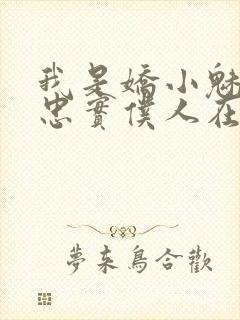 我是嬌小魅
忠實僕人在
夢來鳥合歡